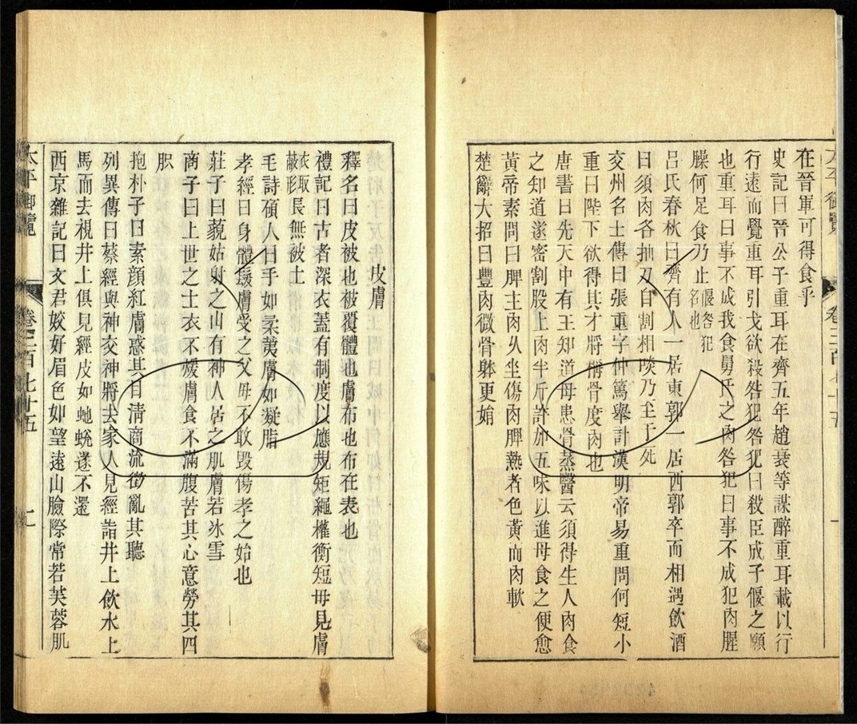 在晉軍可得食乎
史記曰晉公子重耳在齊五年趙衰等謀醉重耳載以行
行遠而覺重耳引戈欲殺咎犯咎犯曰殺臣成子偃之願
也重耳曰事不成我食舅氏之肉咎犯曰事不成犯肉腥
臊何足食乃止偃咎犯名也
呂氏春秋曰齊有人一居東郭一居西郭卒而相遇飲酒
曰須肉各抽刃自割相啖乃至于死
交州名士傳曰張重字仲篤舉計漢明帝易重問何短小
重曰陛下欲得其才將稱骨度肉也
唐書曰先天中有王知道母患骨蒸醫云須得生人肉食
之知道遂密割股上肉半斤許加五味以進母食之便愈
黃帝素問曰脾主肉久坐傷肉脾熱者色黃而肉軟
楚辭大招曰豐肉微骨躰更娟
皮膚
釋名曰皮被也被覆體也膚布也布在表也
禮記曰古者深衣蓋有制度以應規矩繩權衡短毋見膚
衣取蔽形長無被土
毛詩碩人曰手如柔荑膚如凝脂
孝經曰身體髮膚受之父母不敢毀傷孝之始也
莊子曰藐姑射之山有神人居之肌膚若冰雪
商子曰上世之士衣不煖膚食不滿腹苦其心意勞其四
胑
抱朴子曰素顏紅膚惑其目清商流徵亂其聽
列異傳曰蔡經與神交神將去家人見經詣井上飲水上
馬而去視井上俱見經皮如虵蛻遂不還
西京雜記曰文君姣好眉色如望遠山臉際常若芙蓉肌
太平御覽
卷三百七十五